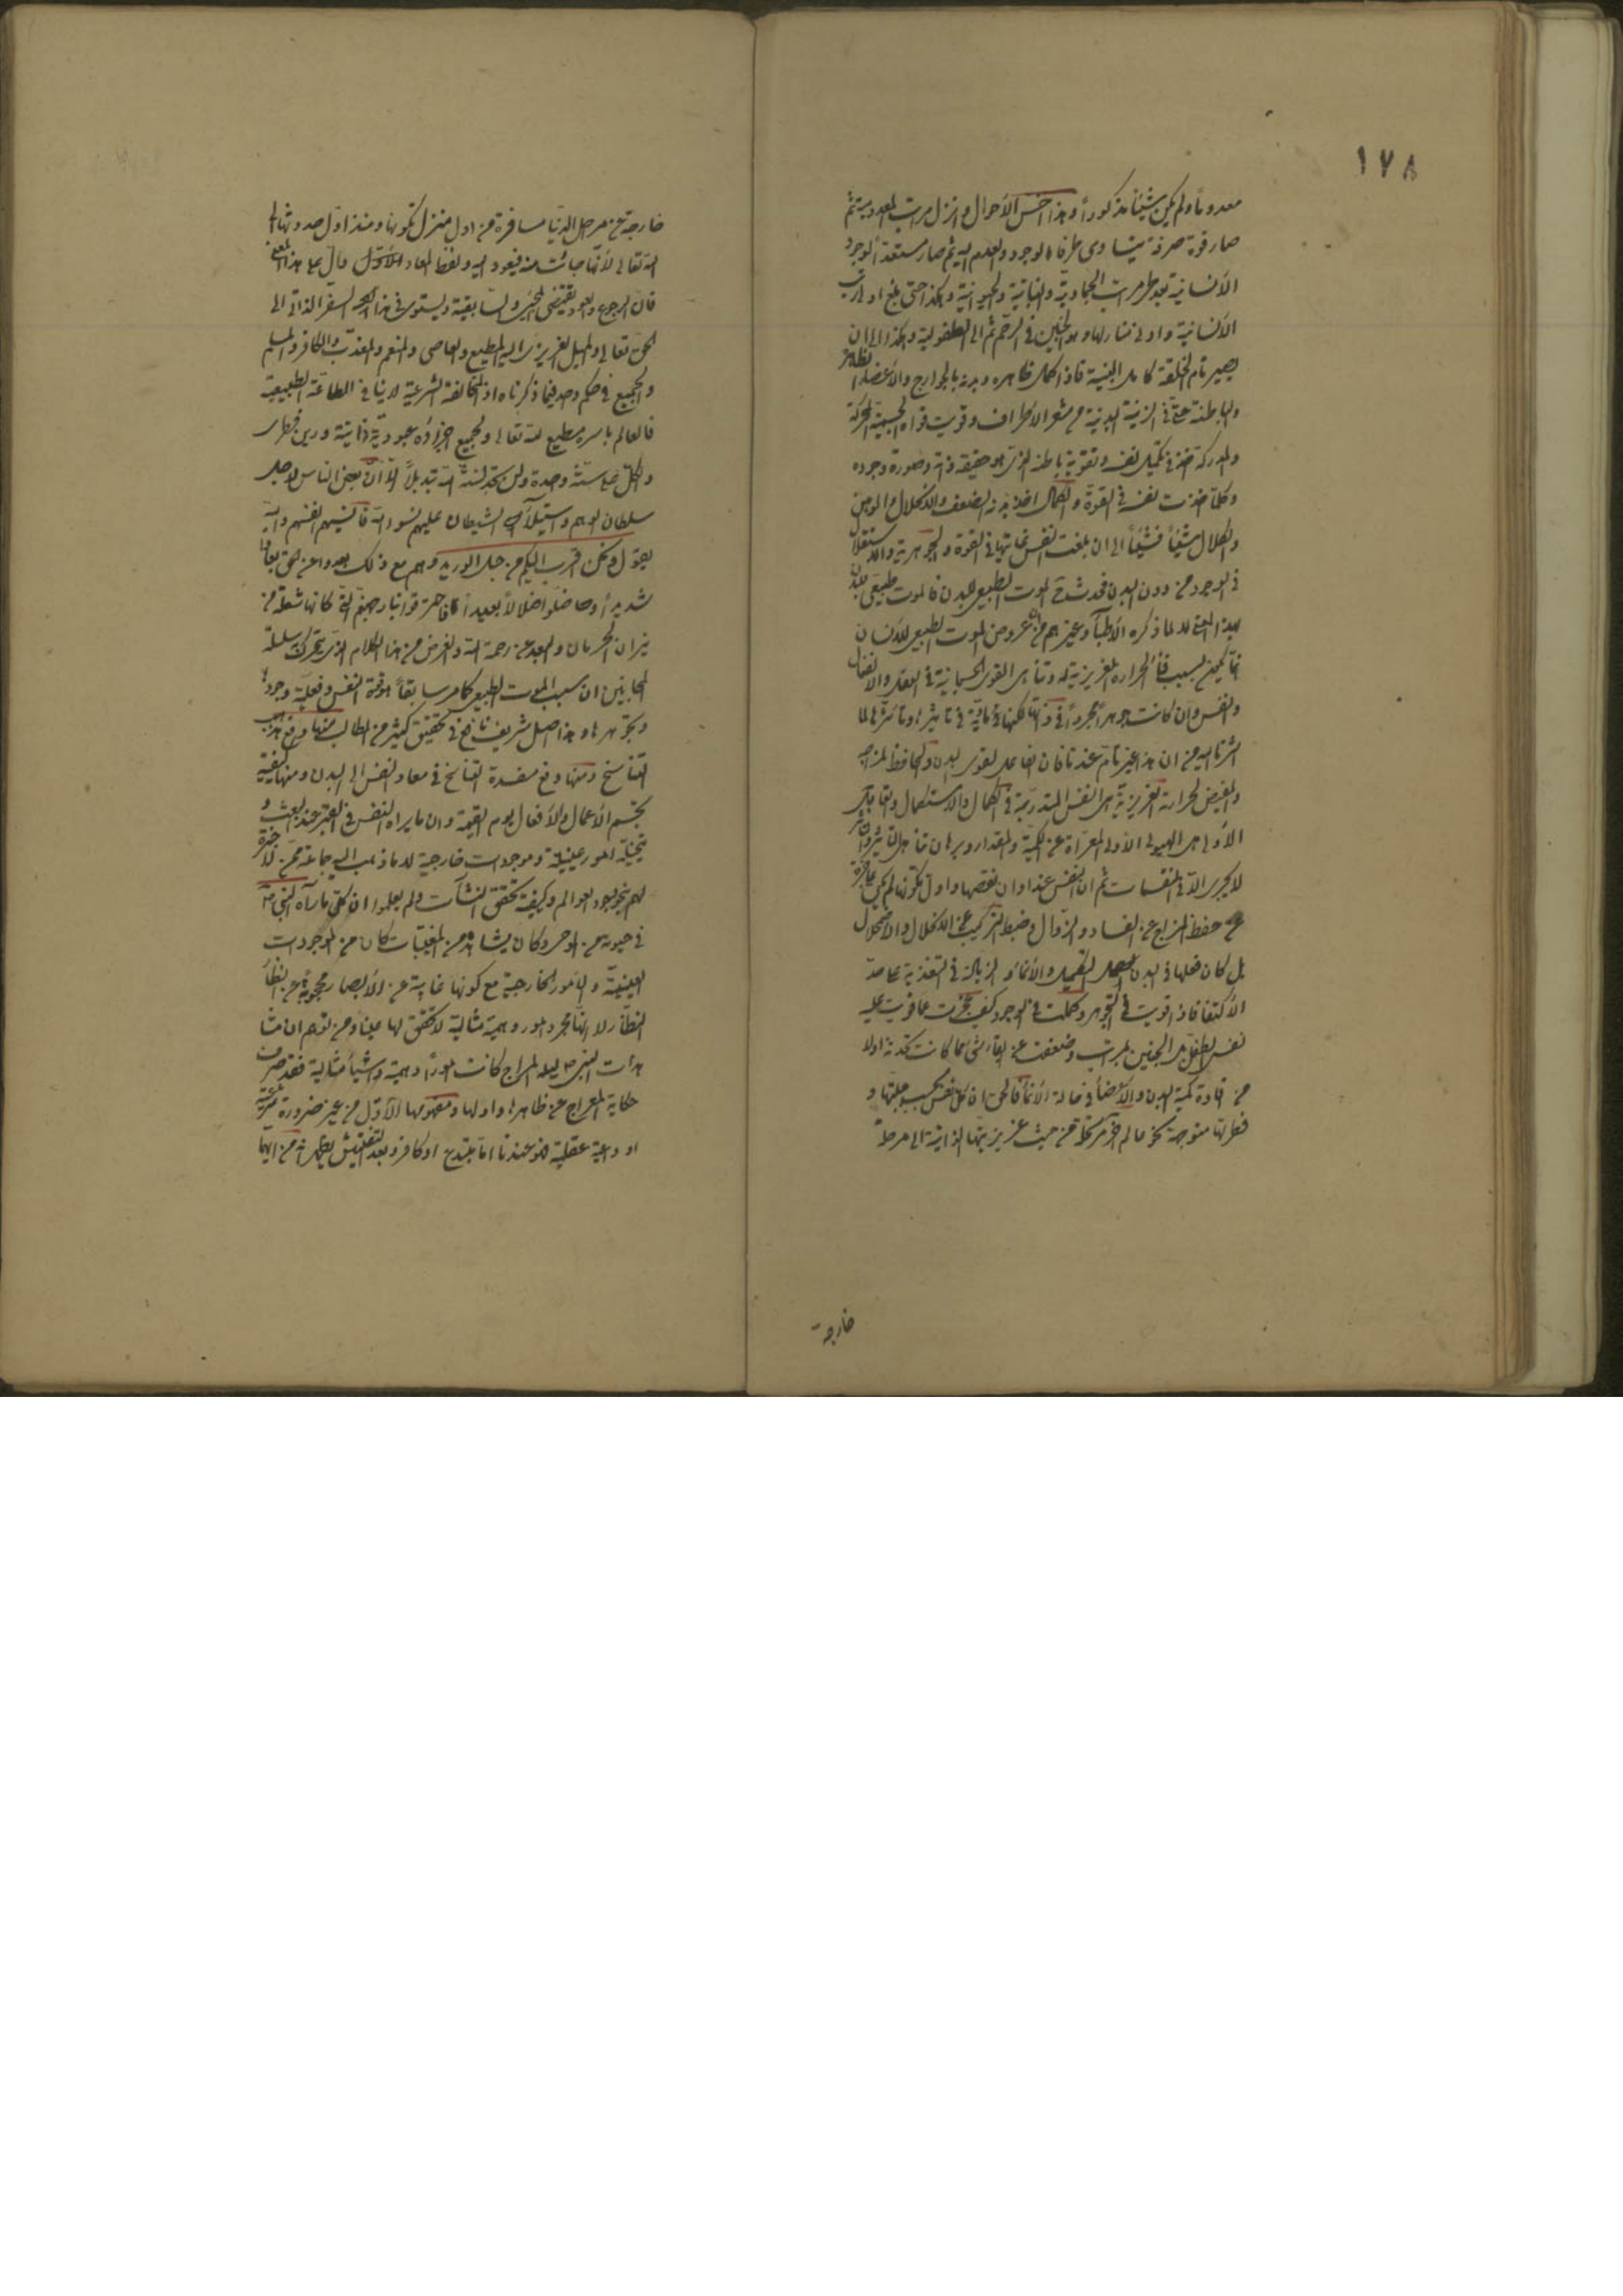 ١٧٨
معدوماً ولم يكن شيئاً مذكوراً وهذا اخسّ الأحوال وانزل مراتب المعدومية ثم
صار قوة صرفة يتساوى طرفاه الوجود والعدم اليه ثم صار مستعداً لوجود
الأنسانية بعد طي مراتب الجمادية والنباتية والحيوانية وهكذا حتى بلغ اول مراتب
الأنسانية واول منازلها وهو الجنين في الرحم ثم الى الطفولية وهكذا الى ان
يصير تام الخلقة كامل البنية فاذا كمل ظاهره وبدنه بالجوارح والأعضاء الظاهرة
والباطنة حتى في الزينة البدنية من شعر الأطراف وقويت قواه الجسمية المحركة
والمدركة اخذ في تكميل نفسه وتقوية باطنه الذي هو حقيقة ذاته وصورة وجوده
وكلما اخذت نفسه في القوة والكمال اخذ بدنه في الضعف والانحلال والوهن
والكلال شيئاً فشيئاً الى ان بلغت النفس غايتها في القوة والجوهرية والاستقلال
في الوجود من دون البدن فحدث الموت الطبيعي للبدن فالموت طبيعي للبدن
بهذا المعنى لا لما ذكره الأطبآء وغيرهم من ان عروض الموت الطبيعي للأنسان
انما يكون بسبب فنآء الحرارة الغريزية له وتناهى القوى الجسمانية في الفعل والانفعال
والنفس وان كانت جوهراً مجرداً في ذاتها لكنها مادية في تأثيرها وتأثرها لما
اشرنا اليه من ان هذا غير تام عندنا فان الفاعل لقوى البدن والحافظ لمزاجه
والمفيض لحرارته الغريزية هي النفس المتدرجة في الكمال والاستكمال والقابل
الأولى هي الهيولى الأولى المعراة عن الكمية والمقدار وبرهان تناهى التأثير والتأثر
لا يجرى الا في المنقسمات ثم ان النفس عند اوان نقصها واول تكونها لم تكن عاجزة
عن حفظ المزاج عن الفساد والزوال وضبط التركيب عن الانحلال والاضمحلال
بل كان فعلها في البدن التكميل والأنمآء والزيادة في التغذية على حد
الأكتفآء فاذا قويت في التجوهر وكملت في الوجود كيف عجزت عما قويت عليه
نفس الطفل بل الجنين بمراتب وضعفت عن ابقآء شئ مما كانت تحدثه اولا
من مادة كمية البدن والأعضآء في حالة الأنمآء فالحق ان كل نفس بحسب جبلتها و
فطرتها متوجهة نحو عالم آخر مرتحلة من حيث غريزيتها الذاتية الى مرحلة
خارجة
خارجة عن مراحل الدنيا مسافرة من اول منزل تكونها ومنذ اول حدوثها الى
الله تعالى لأنها جآئت منه فيعود اليه ولفظ المعاد الأول دال على هذا المعنى
فان الرجوع والعود يقتضي المجئ والسابقية ويستوى في هذا السفر الذاتي الى
الحق تعالى والميل الغريزى اليه المطيع والعاصى والمنعم والمعذب والكافر والمسلم
والجميع في حكم واحد فيما ذكرناه اذ المخالفة الشرعية لا ينافى الطاعة الطبيعية
فالعالم باسره مطيع لله تعالى ولجميع اجزاؤه عبودية ذاتية ودين فطرى
والكل على سنة واحدة ولن تجد لسنة الله تبديلاً الا ان بعض الناس لاجل
سلطان الوهم واستيلآء الشيطان عليهم نسوا الله فأنسيهم انفسهم والله
يقول ونحن اقرب اليكم من حبل الوريد وهم مع ذلك بعدوا عن الحق بعداً
شديداً وضلوا ضلالاً بعيداً فاحترقوا بنار جهنم التي كانها شعلة من
نيران الحرمان والبعد عن رحمة الله والغرض من هذا الكلام الذي يحرك سلسلة
المجانين ان سبب الموت الطبيعي كما مر سابقاً هو قوة النفس وفعلية وجودها
وتجوهرها وهذا اصل شريف نافع في تحقيق كثير من المطالب منها دفع مذاهب
التناسخ ومنها دفع مفسدة التناسخ في معاد النفس الى البدن ومنها كيفية
تجسم الأعمال والأفعال يوم القيمة وان ما يراه النفس في القبر عند البعث و
تتخيله امور عينية وموجودات خارجية لا ما ذهب اليه جماعة ممن لا خبرة
لهم بوجود العوالم وكيفية تحقق النشآت ولم يعلموا ان كل ما رآه النبي ص
في حيوته من الوحى وكان يشاهد من المغيبات كان من الموجودات
العينية والأمور الخارجية مع كونها غايبة عن الأبصار محجوبة عن انظار
النظّار لا انها مجرد امور وهمية مثالية لا تحقق لها عيناً ومن توهم ان مشا
هدات النبي ص ليلة المعراج كانت اموراً وهمية واشيآء مثالية فقد صرف
حكاية المعراج عن ظاهرها واولها ومفهومها الأول من غير ضرورة شرعية
او داعية عقلية فهو عندنا اما مبتدع او كافر وبعد التفتيش يعلم انه من ايهما